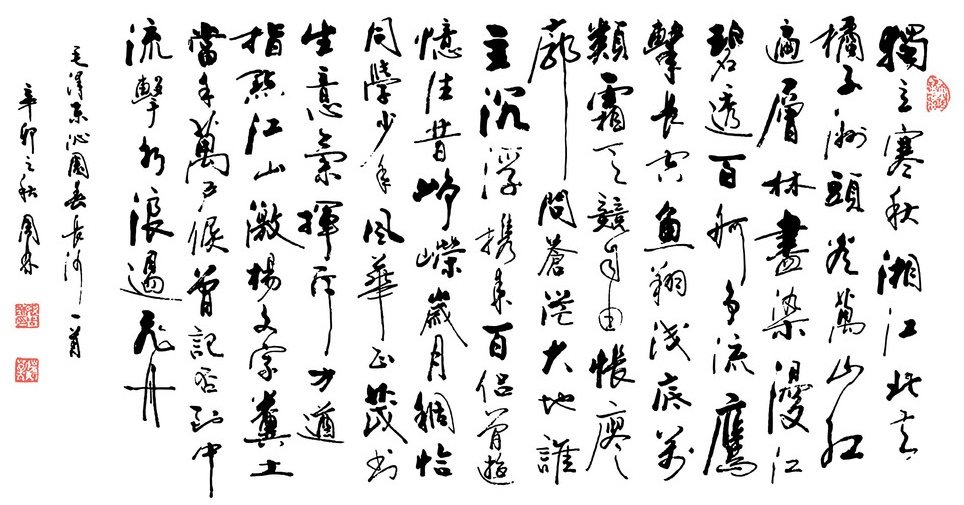 獨立寒秋湘江北去
橘子洲頭看萬山紅
遍層林盡染漫江
碧透百舸爭流鷹
擊長空魚翔淺底萬
類霜天競自由悵廖
廓問蒼茫大地誰
主沉浮攜來百侶曾遊
憶往昔崢嶸歲月稠恰
同學少年風華正茂書
生意氣揮斥方遒
指點江山激揚文字糞土
當年萬戶侯曾記否到中
流擊水浪遏飛舟
毛澤東沁園春長沙一首
辛卯之秋周